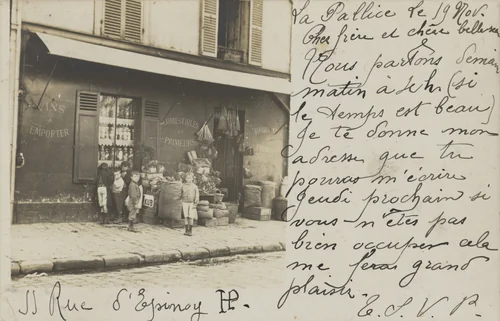 La Pallice le 19 Nov.
Cher frère et chère belle-sœur
Nous partons demain
matin à 4h (si
le temps est beau)
Je te donne mon
adresse que tu
pouras m'écrire
jeudi prochain si
vous n'êtes pas
bien occuper cela
me feras grand
plaisir.
E. S. V. P.
VINS
EMPORTER
COMESTIBLES
PRIMEURS
11 Rue d'Epinoy